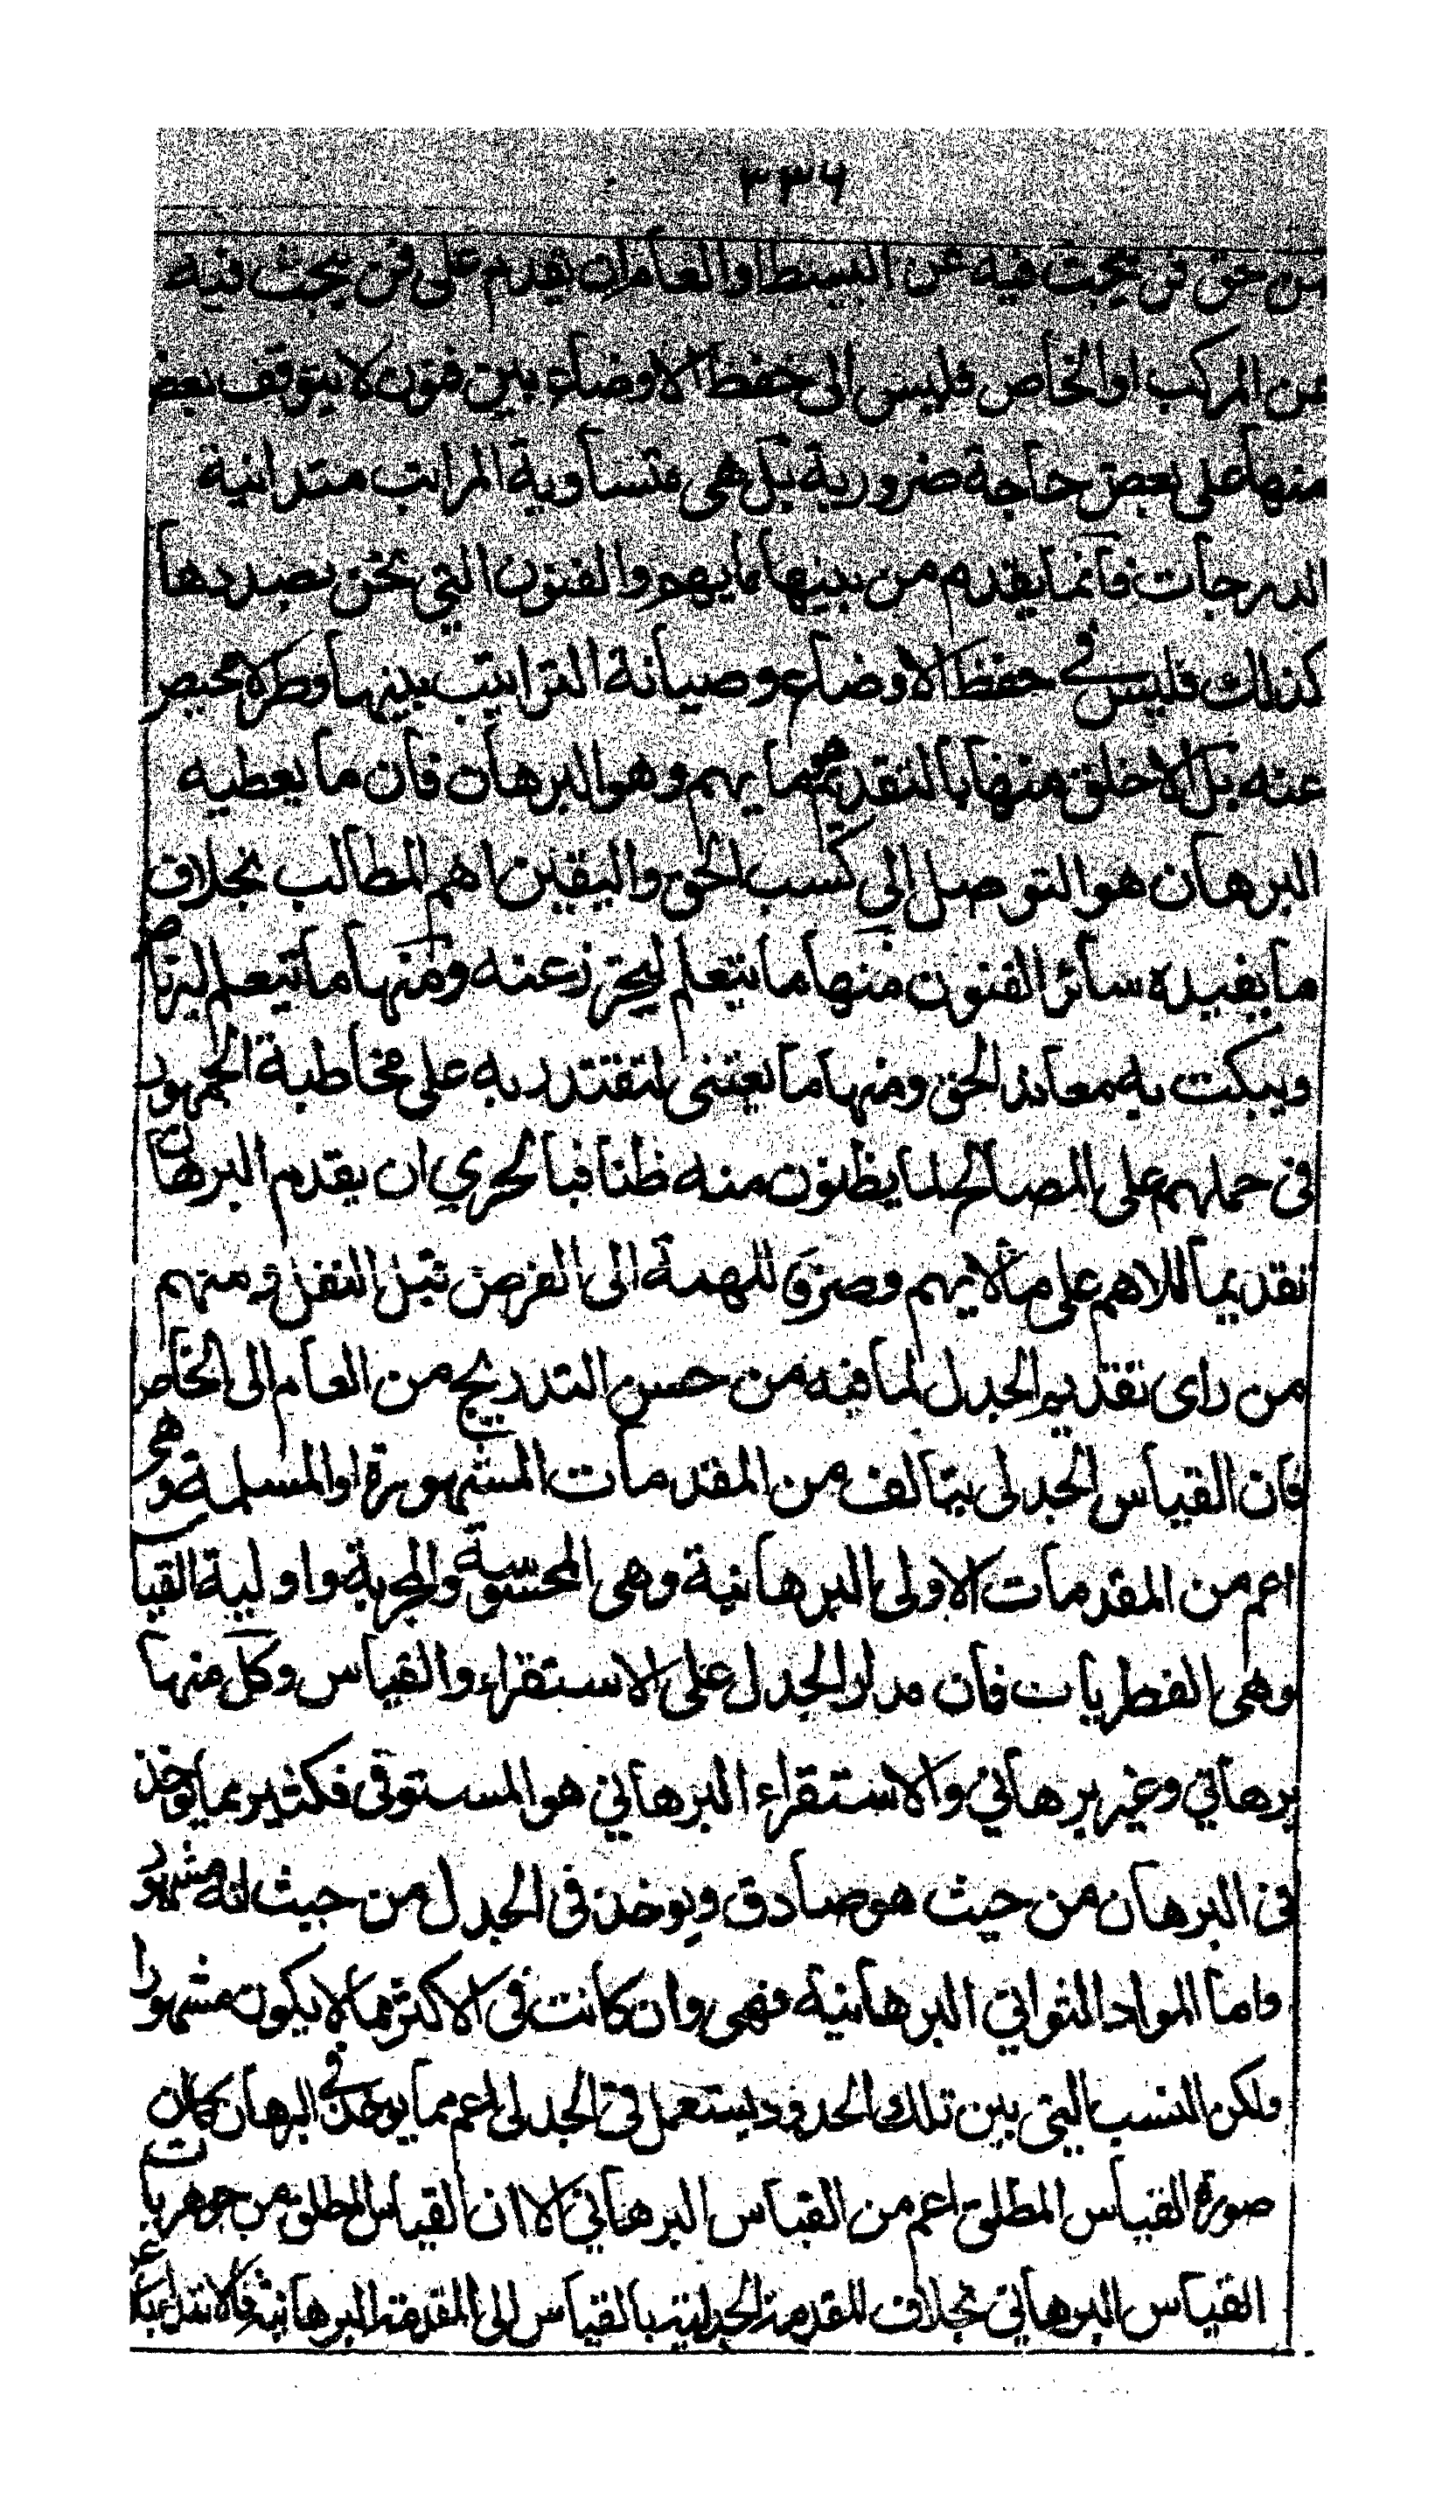 ٣٣٦
من حق فن يبحث فيه عن البسيط او العام ان يقدم على فن يبحث فيه
عن المركب او الخاص فليس الى حفظ الاوضاع بين فنون لا يتوقف بعض
منها على بعض حاجة ضرورية بل هى متساوية المراتب متدانية
الدرجات فانما يقدم من بينها ما يهم والفنون التي نحن بصددها
كذلك فليس في حفظ الاوضاع وصيانة التراتيب بينها وطر لا محيص
عنه بل الاخلق منها بالتقديم ما يهم وهو البرهان فان ما يعطيه
البرهان هو التوصل الى كسب الحق واليقين اهم المطالب بخلاف
ما يفيده سائر الفنون منها ما يتعلم ليحترز عنه ومنها ما يتعلم ليرتاض
ويبكت به معاند الحق ومنها ما يعتنى لتقتدر به على مخاطبة الجمهور
فى حملهم على المصالح لما يظنون منه ظنا فبالحري ان يقدم البرهان
تقديما للاهم على ما لا يهم وصرفا للهمة الى الفرض قبل النفل ومنهم
من راى تقديم الجدل لما فيه من حسن التدريج من العام الى الخاص
فان القياس الجدلى يتالف من المقدمات المشهورة او المسلمة وهى
اعم من المقدمات الاولى البرهانية وهى المحسوسة والمجربة واولية القياس
وهى الفطريات فان مدار الجدل على الاستقراء والقياس وكل منها
برهاني وغير برهاني والاستقراء البرهاني هو المستوفى فكثير مما يوخذ
فى البرهان من حيث هو صادق ويوخذ فى الجدل من حيث انه مشهور
واما المواد الثواني البرهانية فهى وان كانت فى الاكثر مما لا يكون مشهورا
ولكن النسب التي بين تلك الحدود يستعمل فى الجدلى اعم مما يوخذ في البرهان كانت
صورة القياس المطلق اعم من القياس البرهاني الا ان القياس المطلق من جوهريات
القياس البرهاني بخلاف المقدمة الجدلية بالقياس الى المقدمة البرهانية فالانتقال